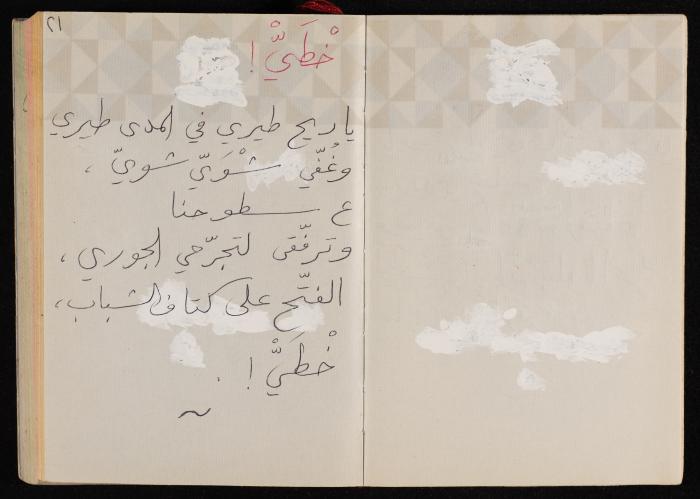 ٢١
خْطَيّْ !
يا ريح طيري في المدى طيري
وغُفّي شْوَيّ شويّ ،
ع سطوحنا
وترفّقى لتجرّحي الجوري ،
الفتّح على كتاف الشباب ،
خْطَيّْ ! .
~